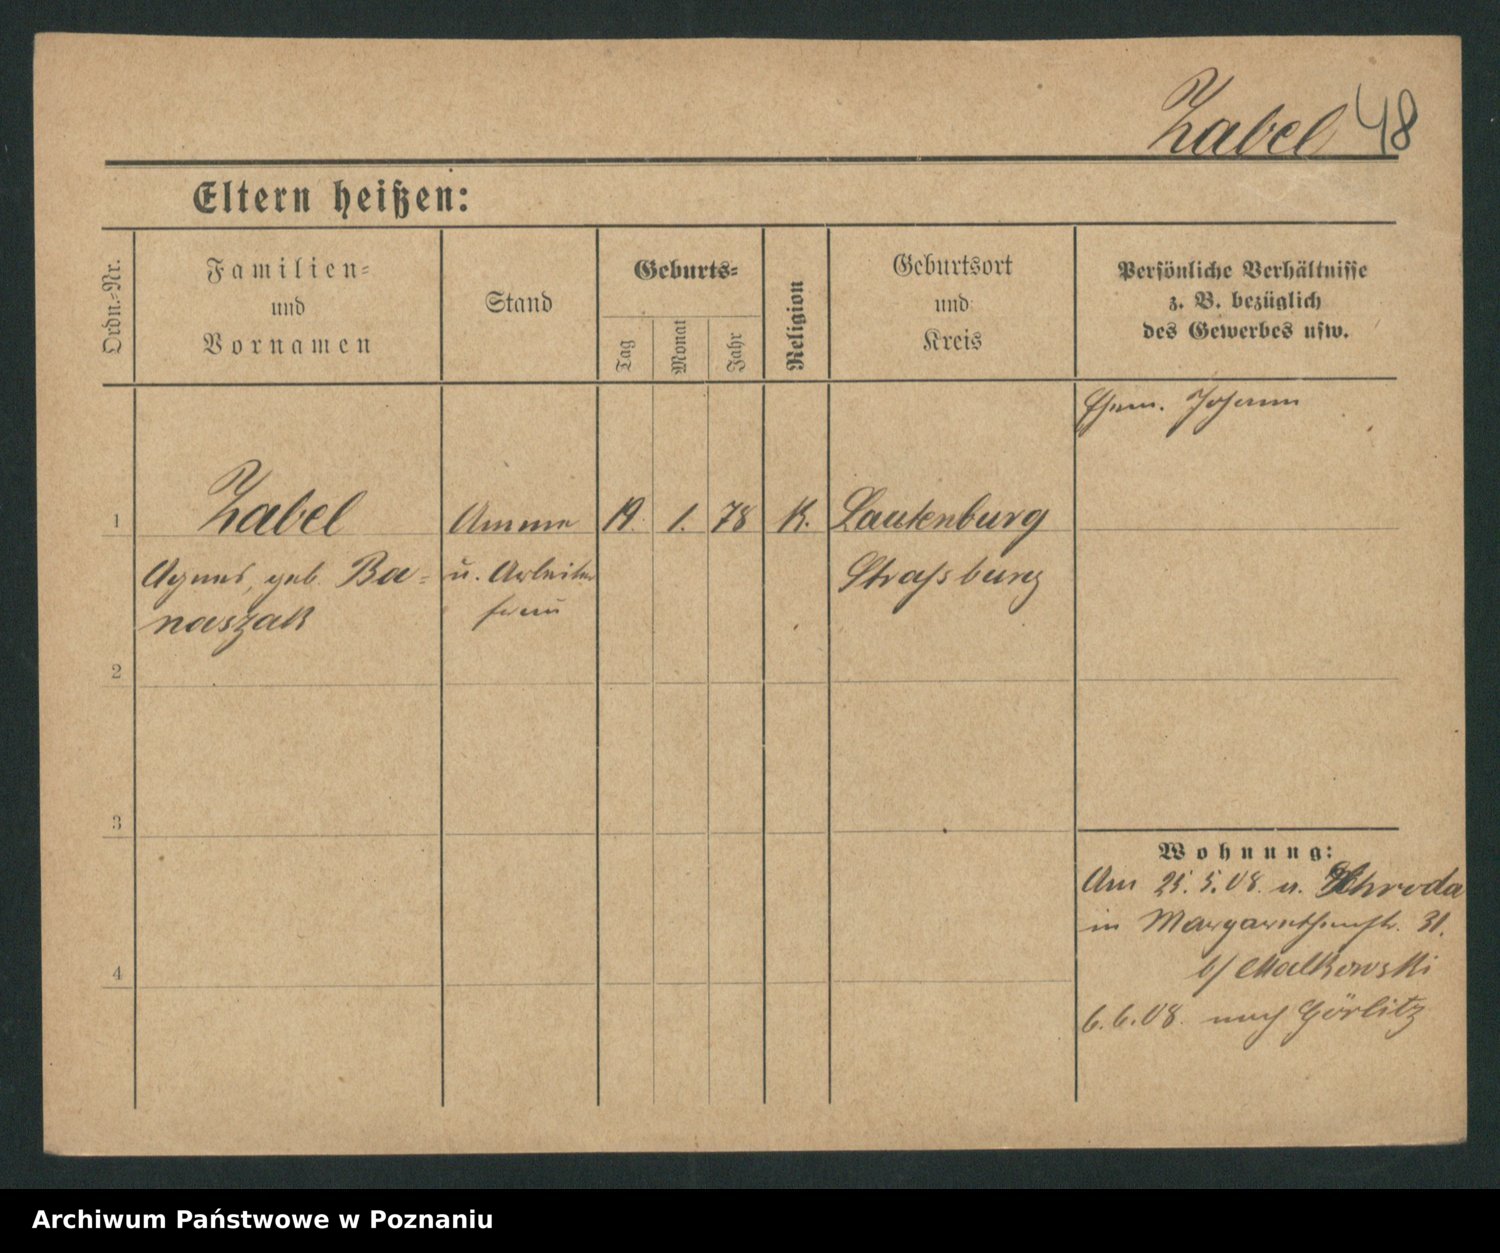 Zabel 48
Eltern heißen:
Ordn.-Nr.
Familien-
und
Vornamen
Stand
Geburts-
Tag
Monat
Jahr
Religion
Geburtsort
und
Kreis
Persönliche Verhältnisse
z. B. bezüglich
des Gewerbes usw.
Ehem. Johann
1 Zabel Amme 19. 1. 78 K. Lautenburg
Agnes, geb. Ba- u. Arbeiter Strassburg
naszak frau
2
3
4
Wohnung:
Am 25.5.08. u. Schroda
in Margarethenstr. 31.
b/ Malkowski
6.6.08. nach Görlitz
Archiwum Państwowe w Poznaniu